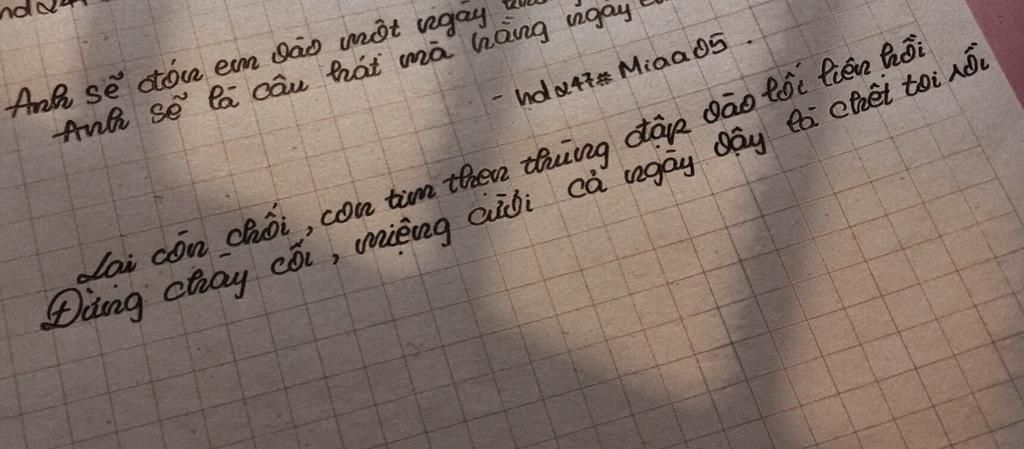 Anh sẽ đón em vào một ngày
Anh sẽ là câu hát mà hằng ngày
- hdx47# Miaa05 .
Lại còn chối, con tim then thùng đập vào lối liên hồi
Đừng chày cối, miệng cười cả ngày vậy là chết tôi rồi